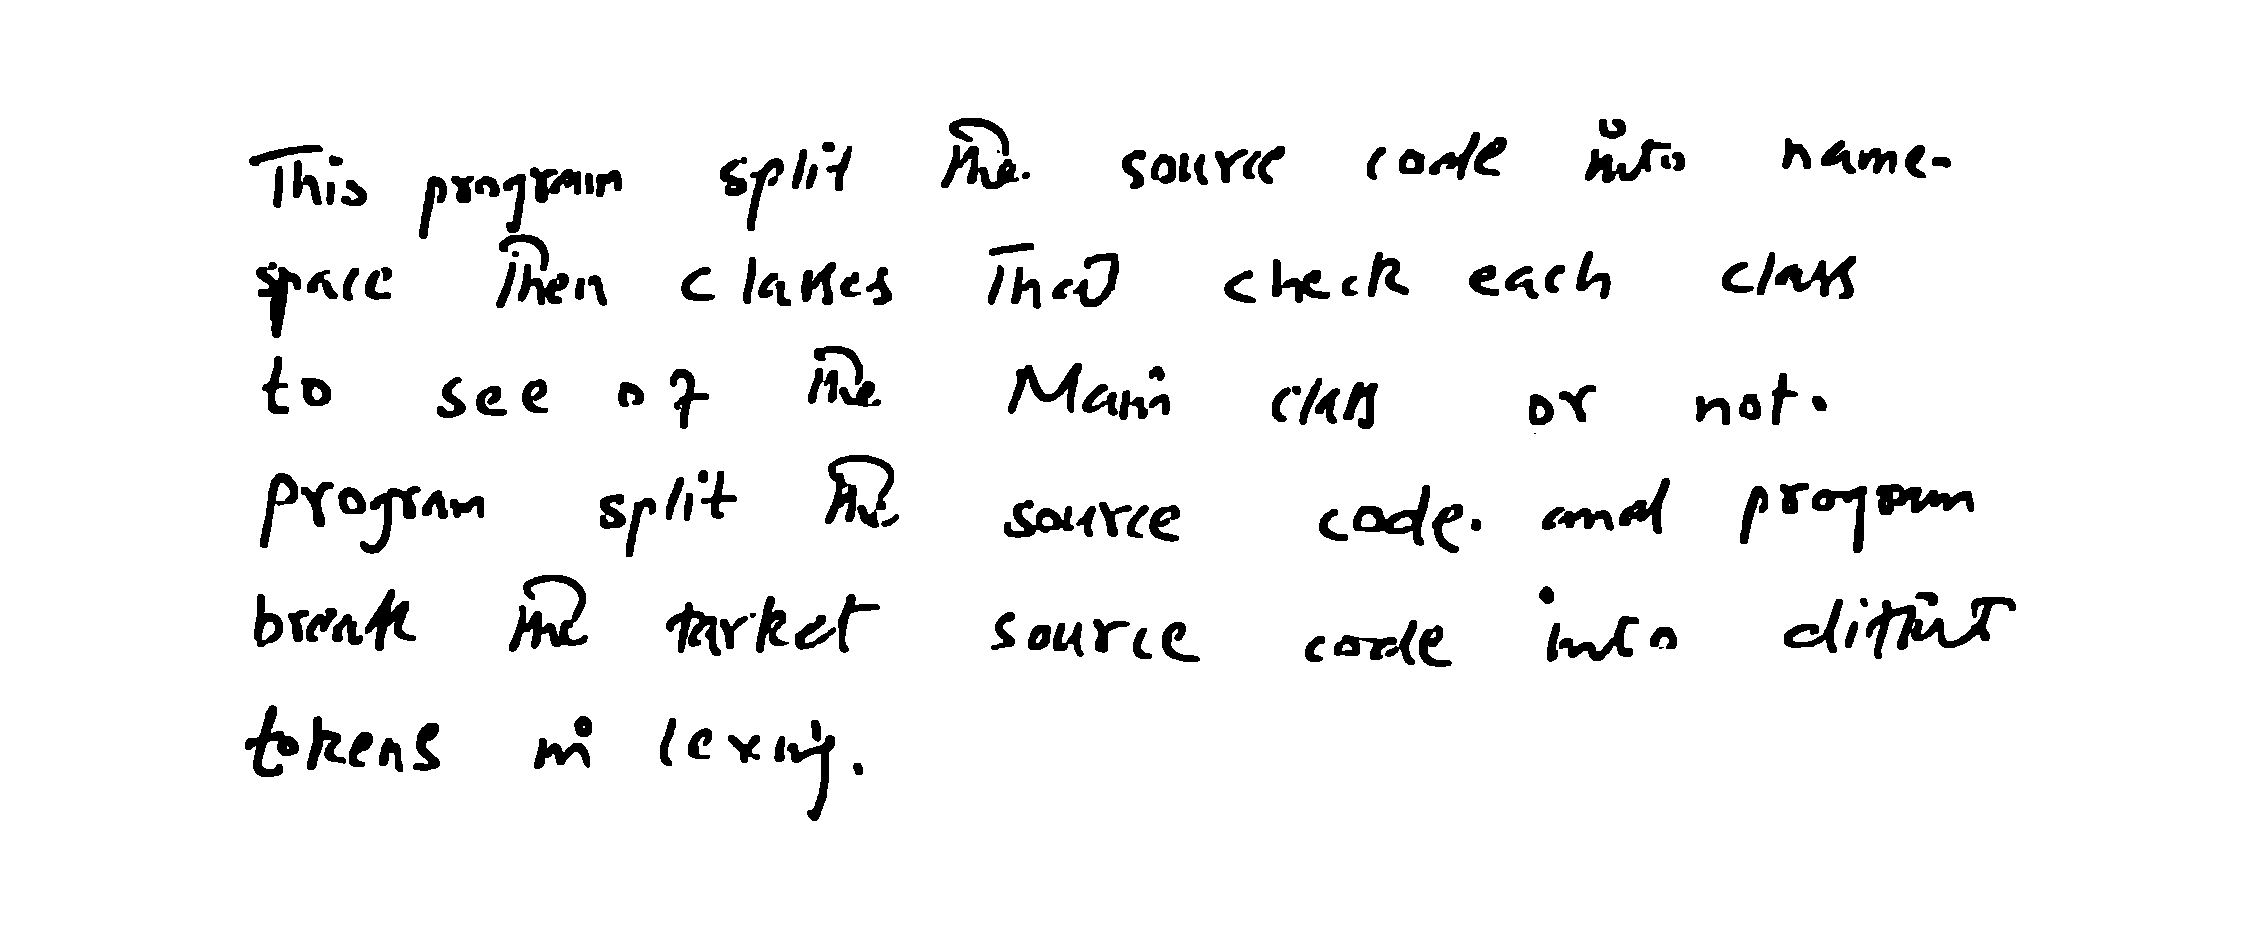 This program split the source code into name-
space then classes that check each class
to see of the Main class or not.
program split the source code. and program
break the tarket source code into diffint
tokens in lexing.